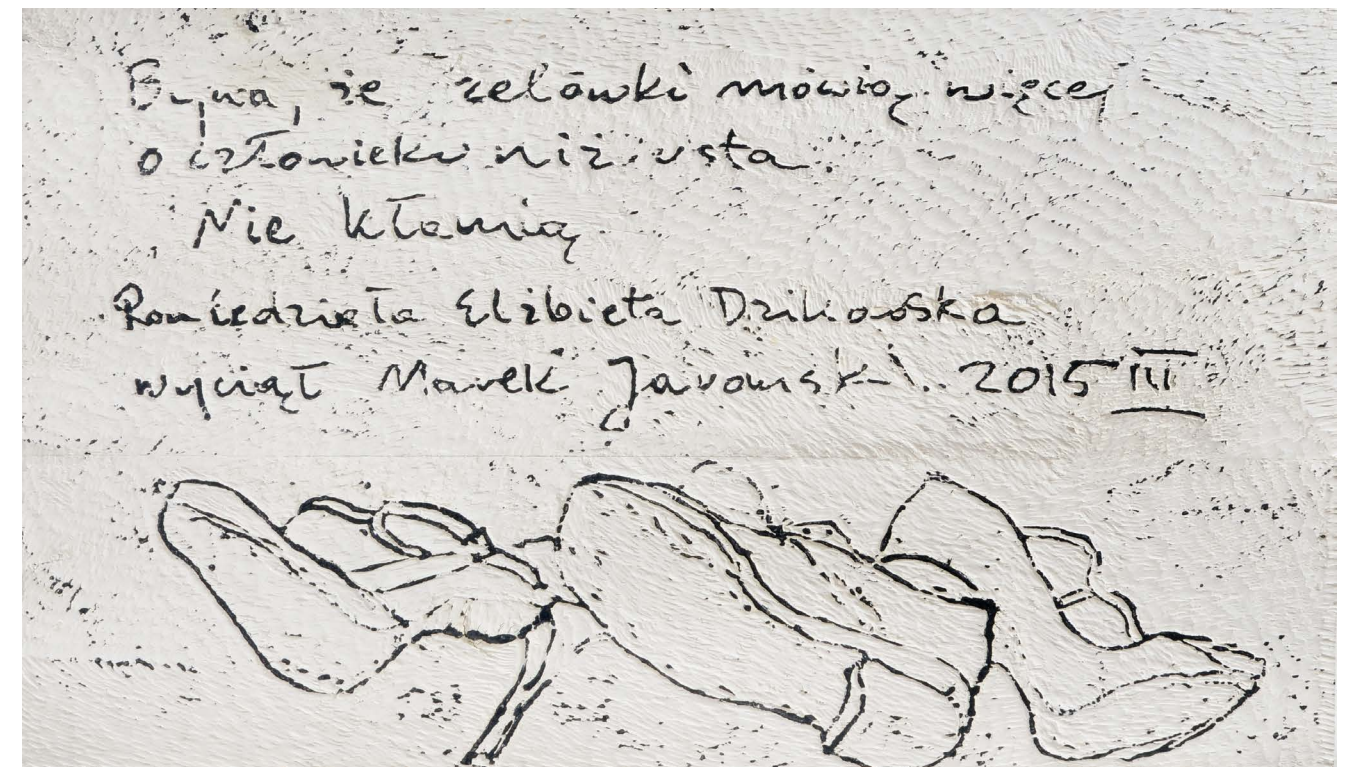 Bywa, że zelówki mówią więcej
o człowieku niż usta.
Nie kłamią
Powiedziała Elżbieta Dzikowska
wyciął Marek Jaromski. 2015 III